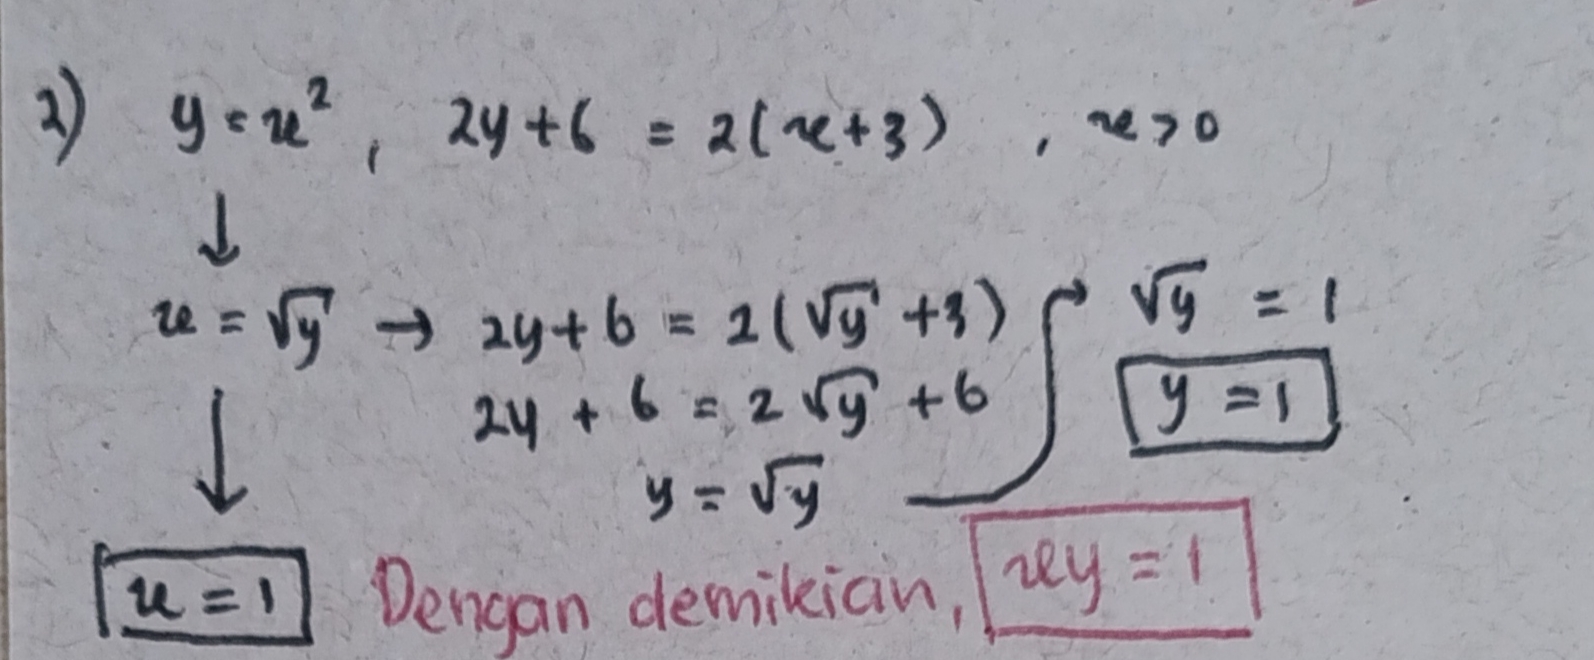 2) y = x², 2y + 6 = 2(x + 3), x > 0
↓
x = √y → 2y + 6 = 2(√y + 3)
2y + 6 = 2√y + 6
y = √y
√y = 1
y = 1
↓
x = 1
Dengan demikian, xy = 1